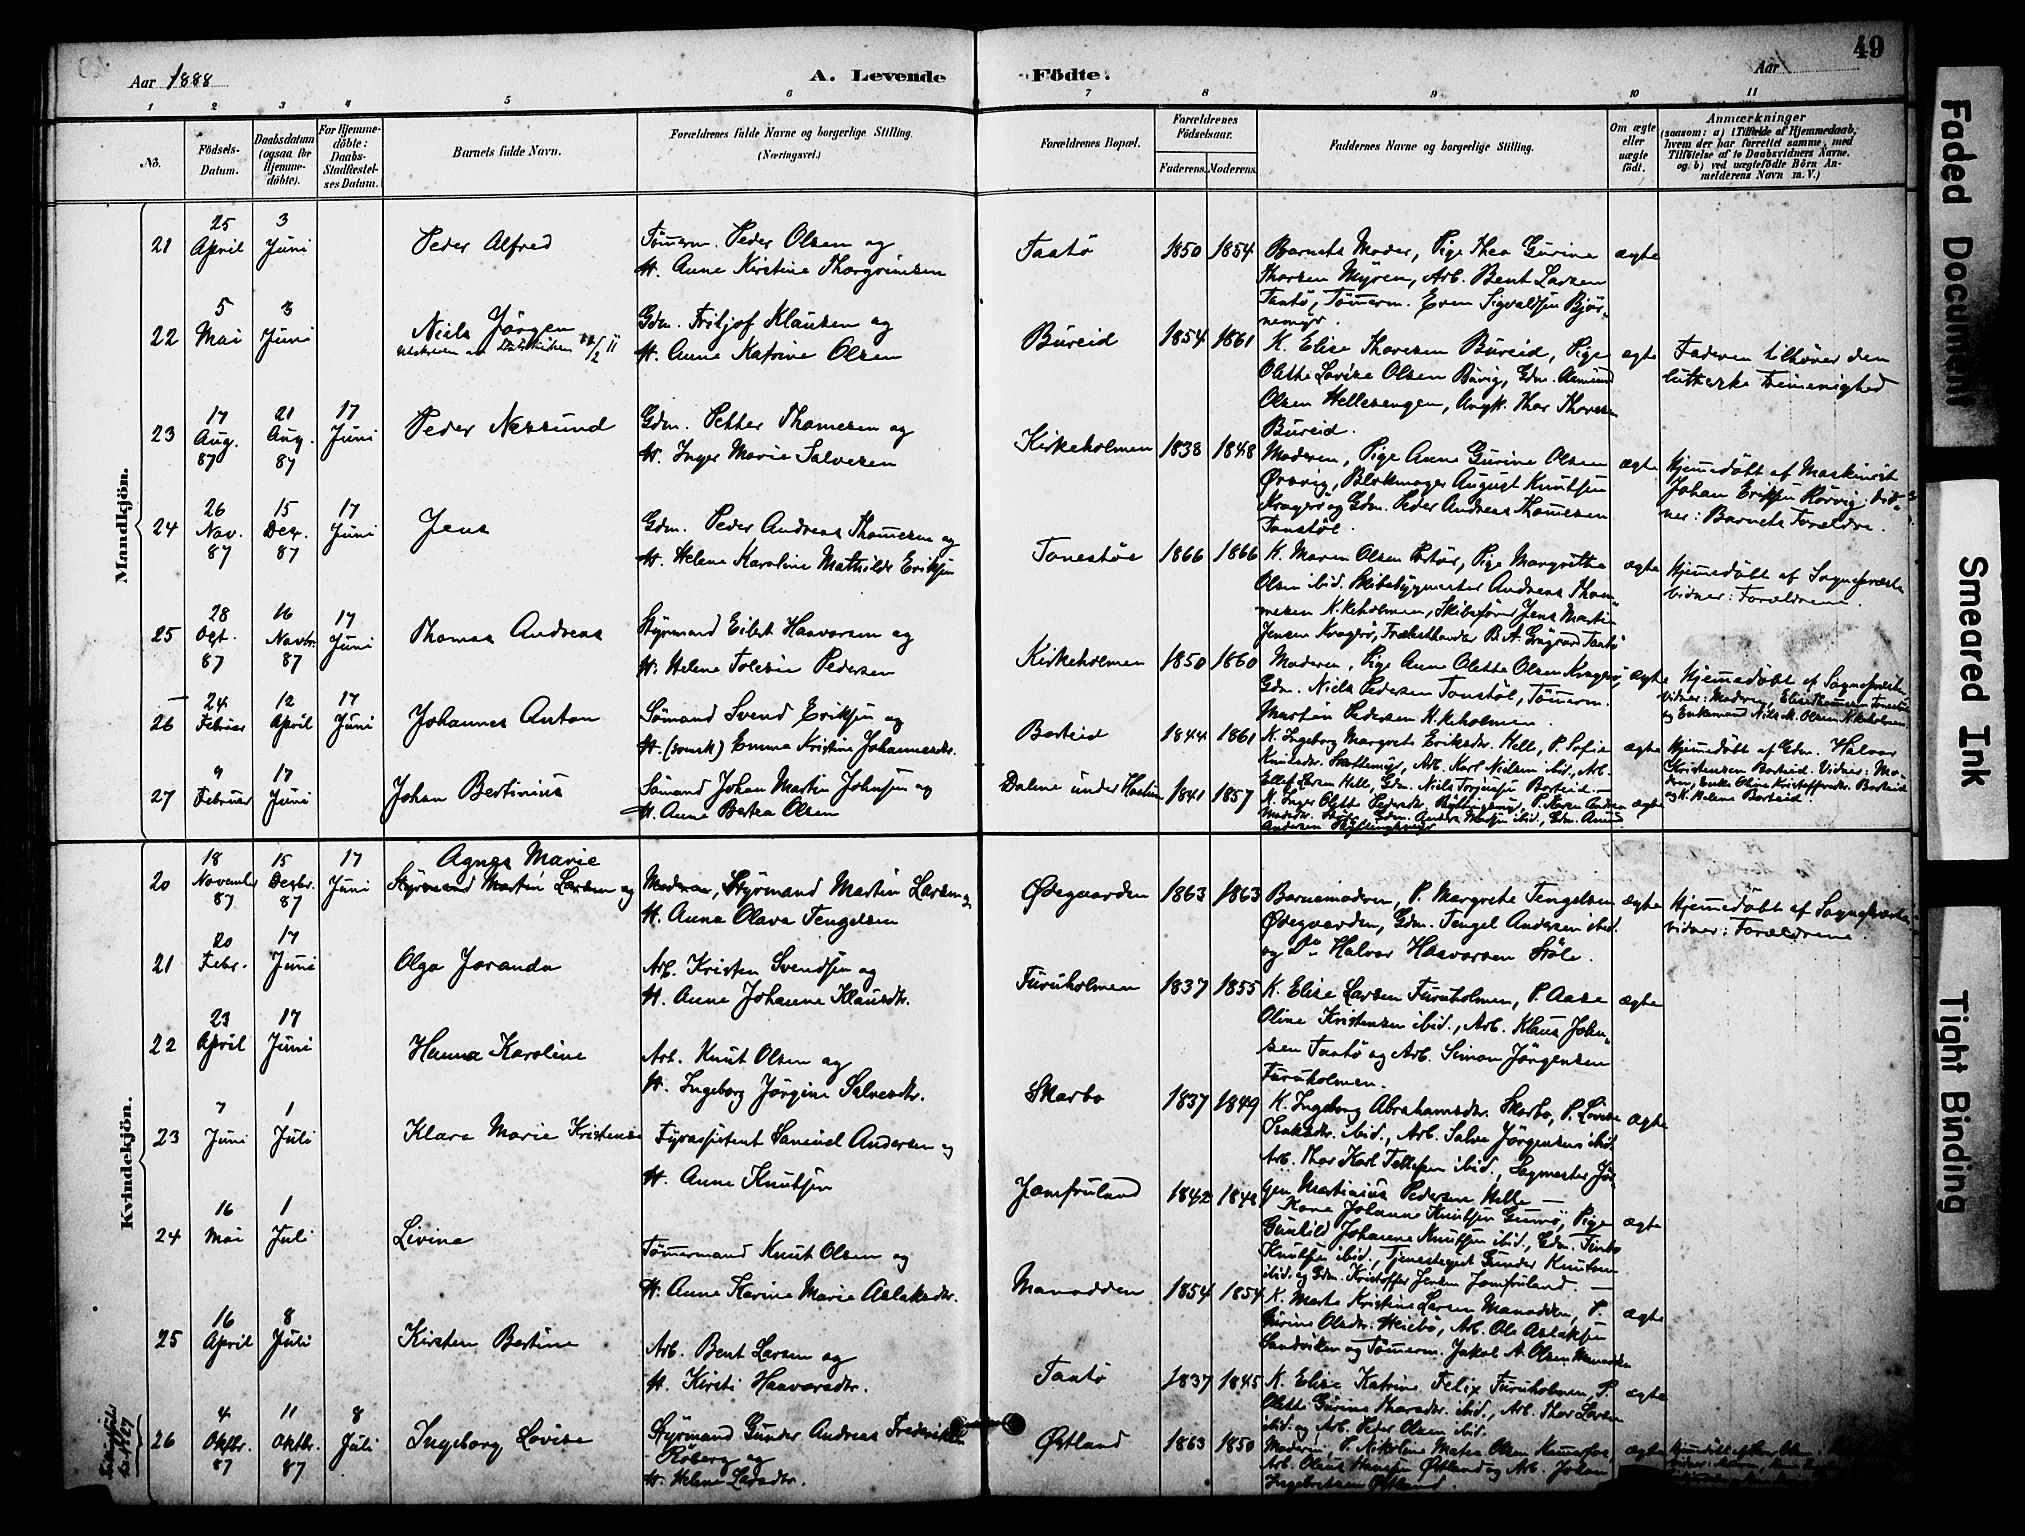 Aar 1888
A. Levende
Födte.
Aar
49
1 2 3 4 5 6 7 8 9 10 11
No.
Födsels-Datum.
Daabsdatum (ogsaa for Hjemme-döbte).
For Hjemme-döbte: Daabs-Stadfæstel-ses Datum.
Barnets fulde Navn.
Forældrenes fulde Navne og borgerlige Stilling. (Næringsvei.)
Forældrenes Bopæl.
Forældrenes Födselsaar.
Faderens. Moderens.
Faddernes Navne og borgerlige Stilling.
Om ægte eller uægte födt.
Anmærkninger
(saasom: a) i Tilfælde af Hjemmedaab, hvem der har forrettet samme, med Tilföielse af to Daabsvidners Navne. og b) ved uægtefödte Börn An-melderens Navn m. V.)
Mandkjön.
21 25 April 3 Juni
Peder Alfred
Tömerm. Peder Olsen og
H. Anne Kirstine Thorgrimsen
Taatö 1850 1854
Barnets Moder, Pige Thea Gurine
Thorsen Myren, Arb. Bent Larsen
Taatö, Tömerm. Even Sigvaldsen Björ-
nemyr.
ægte
22 5 Mai 3 Juni
Niels Jörgen
Gdm. Fritjof Klausen og
H. Anne Katrine Olsen
Büreid 1854 1861
K. Elise Thoresen Büreid, Pige
Olette Lovise Olsen Barig, Gdm. Amund
Olsen Hellesengen, Ungk. Thor Thoresen
Büreid.
ægte
Faderen tilhörer den
lutherske Frimenighed
23 17 Aug. 87 21 Aug. 87 17 Juni
Peder Nersund
Gdm. Petter Thomesen og
H. Inger Marie Salvesen
Kirkeholmen 1838 1848
Moderen, Pige Anne Gurine Olsen
Örvig, Blokmager August Knutsen
Kragerö og Gdm. Peder Andreas Thomesen
Tonstöl
ægte
Hjemmedöbt af Maskinist
Johan Eriksen Rörvig. Vid-
ner: Barnets Forældre.
24 26 Nov. 87 15 Dez. 87 17 Juni
Jens
Gdm. Peder Andreas Thomesen og
H. Helene Karoline Mathilde Eriksen
Tonestöl 1866 1866
K. Maren Olsen Portör, Pige Margrethe
Olsen ibid. Skibsbygmester Andreas Thom-
mesen Kirkeholmen, Skibsförer Jens Martin
Jensen Kragerö, Træladthandler B. A. Taatö
ægte
Hjemmedöbt af Sognepræsten
Vidner: Forældrene.
25 28 Okt. 87 16 Novbr. 87 17 Juni
Thomas Andreas
Styrmand Eilert Haavorsen og
H. Helene Tolesie Pedersen
Kirkeholmen 1850 1860
Moderen, Pige Anne Olette Olsen Kragerö,
Gdm. Niels Pedersen Tonstöl, Tömerm.
Martin Pedersen K.keholmen.
ægte
Hjemmedöbt af Sognepræsten
Vidner: Modren, Elise Thomesen Tonestöl
og Enkemand Niels M. Olsen K.keholmen
26 24 Februar 12 April 17 Juni
Johannes Anton
Sömand Svend Eriksen og
H. (svensk) Emma Kristine Johannesdtr.
Borteid 1844 1861
K. Ingeborg Margrete Eriksdtr. Helle, P. Sofie
Knudsdtr. Arb. Karl Nielsen ibid., Arb.
Ellef Larsen Helle, Gdm. Niels Torjusen Borteid.
ægte
Hjemmedöbt af Gdm. Halvor
Kristensen Borteid. Vidner: Mo-
dren, Enke Oline Kristoffersdtr. Borteid
og K. Helene Borteid.
27 9 Februar 17 Juni
Johan Bertinius
Sömand Johan Martin Johnsen og
H. Anne Bertea Olsen
Dalene under 1841 1857
K. Inger Olette Pedersdtr.
ægte
Kvindekjön.
20 18 November 87 15 Dezbr. 87 17 Juni
Agnes Marie
Styrmand Martin Larsen og
Modren, Styrmand Martin Larsen og
H. Anna Olava Tengelsen
Ödegaarden 1863 1863
Barnemodren, P. Margrete Tengelsen
Ödegaarden, Gdm. Tengel Andersen ibid.
og Do. Halvor Haavorsen Stöle.
ægte
Hjemmedöbt af Sognepræsten
Vidner: Forældrene.
21 20 Febr. 17 Juni
Olga Joranda
Arb. Kristen Svendsen og
H. Anne Johanne Klausdtr.
Furuholmen 1837 1855
K. Elise Larsen Furuholmen, P. Aase
Oline Kristensen ibid., Arb. Klaus Johan-
sen Taatö og Arb. Simon Jörgensen
Furuholmen.
ægte
22 23 April 17 Juni
Hanna Karoline
Arb. Knut Olsen og
H. Ingeborg Jörgine Salvesdtr.
Skarbo 1837 1849
K. Ingeborg Abrahamsdtr. Skarbo, P. Lovise
Isaksdtr. ibid., Arb. Salve Jörgensen ibid.
Arb. Thor Karl Tellefsen ibid., Sagmester Jör-
gen Martinius Pedersen Helle
ægte
23 7 Juni 1 Juli
Klara Marie Kristense
Fyrassistent Samuel Andersen og
H. Anne Knutsen
Jomfruland 1842 1848
Kone Johanne Knutsen Gumö, Pige
Gunild Johanne Knutsen ibid., Gdm.
Knutsen ibid., Tjenestegut Gunder Knutsen
ibid. og Gdm. Kristoffer Jensen Jomfruland.
ægte
24 16 Mai 1 Juli
Livine
Tömermand Knut Olsen og
H. Anne Karine Marie Aslaksdtr.
Manodden 1854 1854
K. Marte Kristine Larsen Manodden, P.
Gurine Olsdtr. Heibö, Arb. Ole Aslaksen
Sandviken og Tömerm. Jakob A. Olsen Manodden
ægte
25 16 April 8 Juli
Kirsten Bertine
Arb. Bent Larsen og
H. Kirsti Haavorsdtr.
Taatö 1837 1845
K. Elise Katrine Felix Furuholmen, P.
Olette Gurine Thorsdtr. ibid., Arb. Thor Larsen
ibid. og Arb. Peter Olsen ibid.
ægte
26 4 Oktbr. 87 11 Oktbr. 87 8 Juli
Ingeborg Lovise
Styrmand Gunder Andreas Frederiksen
Röberg og
H. Helene Larsdtr.
Östland 1863 1850
Moderen, P. Nikoline Matea Olsen
Arb. Olaus Hansen Östland og Arb. Johan
Ingebretsen Östland.
ægte
Faded Document
Smeared Ink
Tight Binding